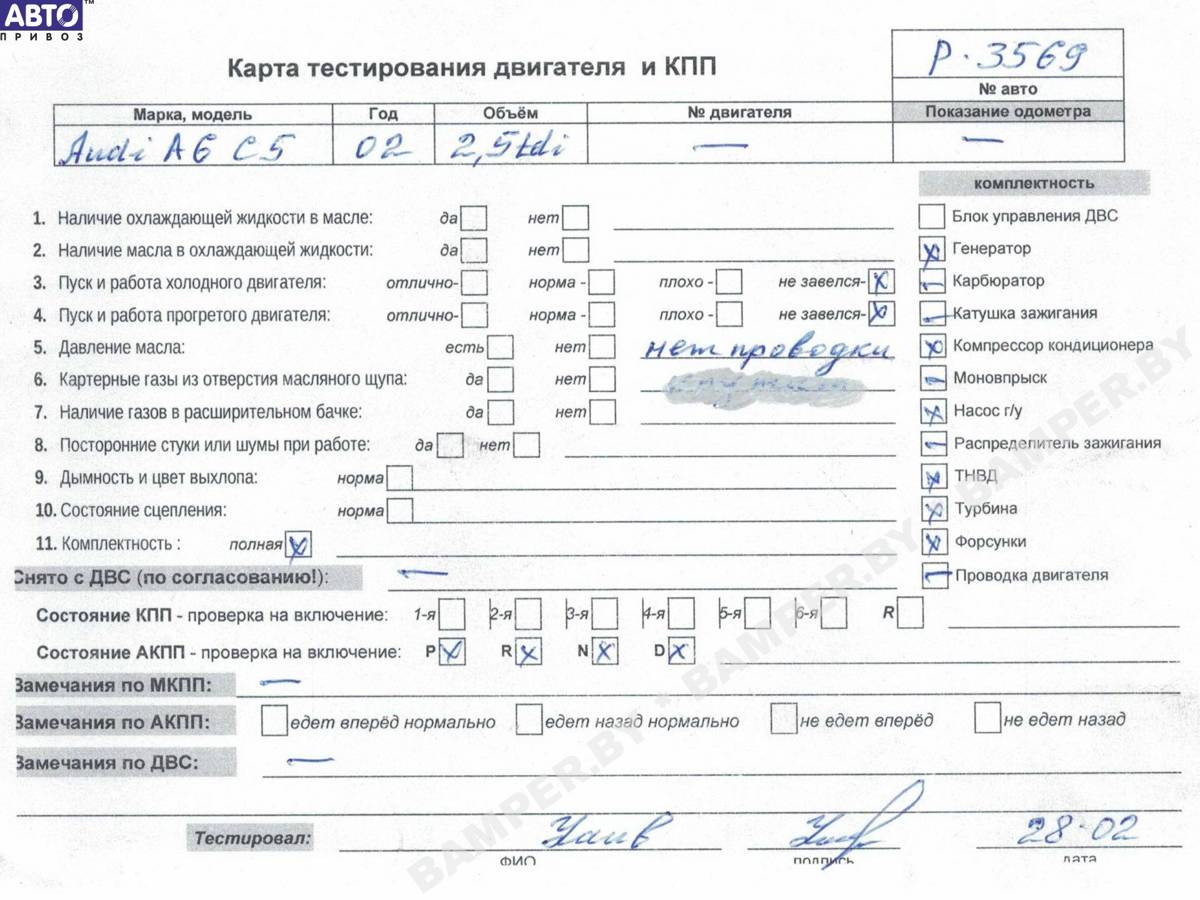 АВТО™
ПРИВОЗ
Р-3569
Карта тестирования двигателя и КПП
№ авто
Марка, модель Год Объём № двигателя Показание одометра
Audi A6 C5 02 2,5tdi — —
комплектность
1. Наличие охлаждающей жидкости в масле: да нет Блок управления ДВС
2. Наличие масла в охлаждающей жидкости: да нет Генератор
3. Пуск и работа холодного двигателя: отлично- норма - плохо - не завелся- Карбюратор
4. Пуск и работа прогретого двигателя: отлично- норма - плохо - не завелся- Катушка зажигания
5. Давление масла: есть нет нет проводки Компрессор кондиционера
6. Картерные газы из отверстия масляного щупа: да нет Моновпрыск
7. Наличие газов в расширительном бачке: да нет Насос г/у
8. Посторонние стуки или шумы при работе: да нет Распределитель зажигания
9. Дымность и цвет выхлопа: норма ТНВД
10. Состояние сцепления: норма Турбина
11. Комплектность : полная Форсунки
Снято с ДВС (по согласованию!): — Проводка двигателя
Состояние КПП - проверка на включение: 1-я 2-я 3-я 4-я 5-я 6-я R
Состояние АКПП - проверка на включение: P R N D
Замечания по МКПП: —
Замечания по АКПП: едет вперёд нормально едет назад нормально не едет вперёд не едет назад
Замечания по ДВС: —
Тестировал: 28-02
ФИО подпись дата
BAMPER.BY * BAMPER.BY * BAMPER.BY